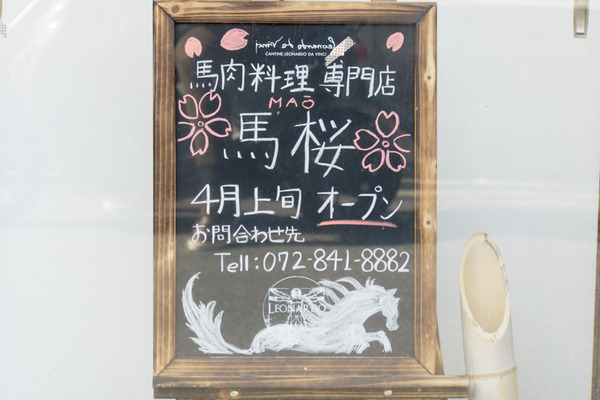 Leonardo da Vinci
CANTINE LEONARDO DA VINCI
馬肉料理 専門店
MAŌ
馬桜
4月上旬 オープン
お問合わせ先
Tell:072-841-8882
LEONARDO